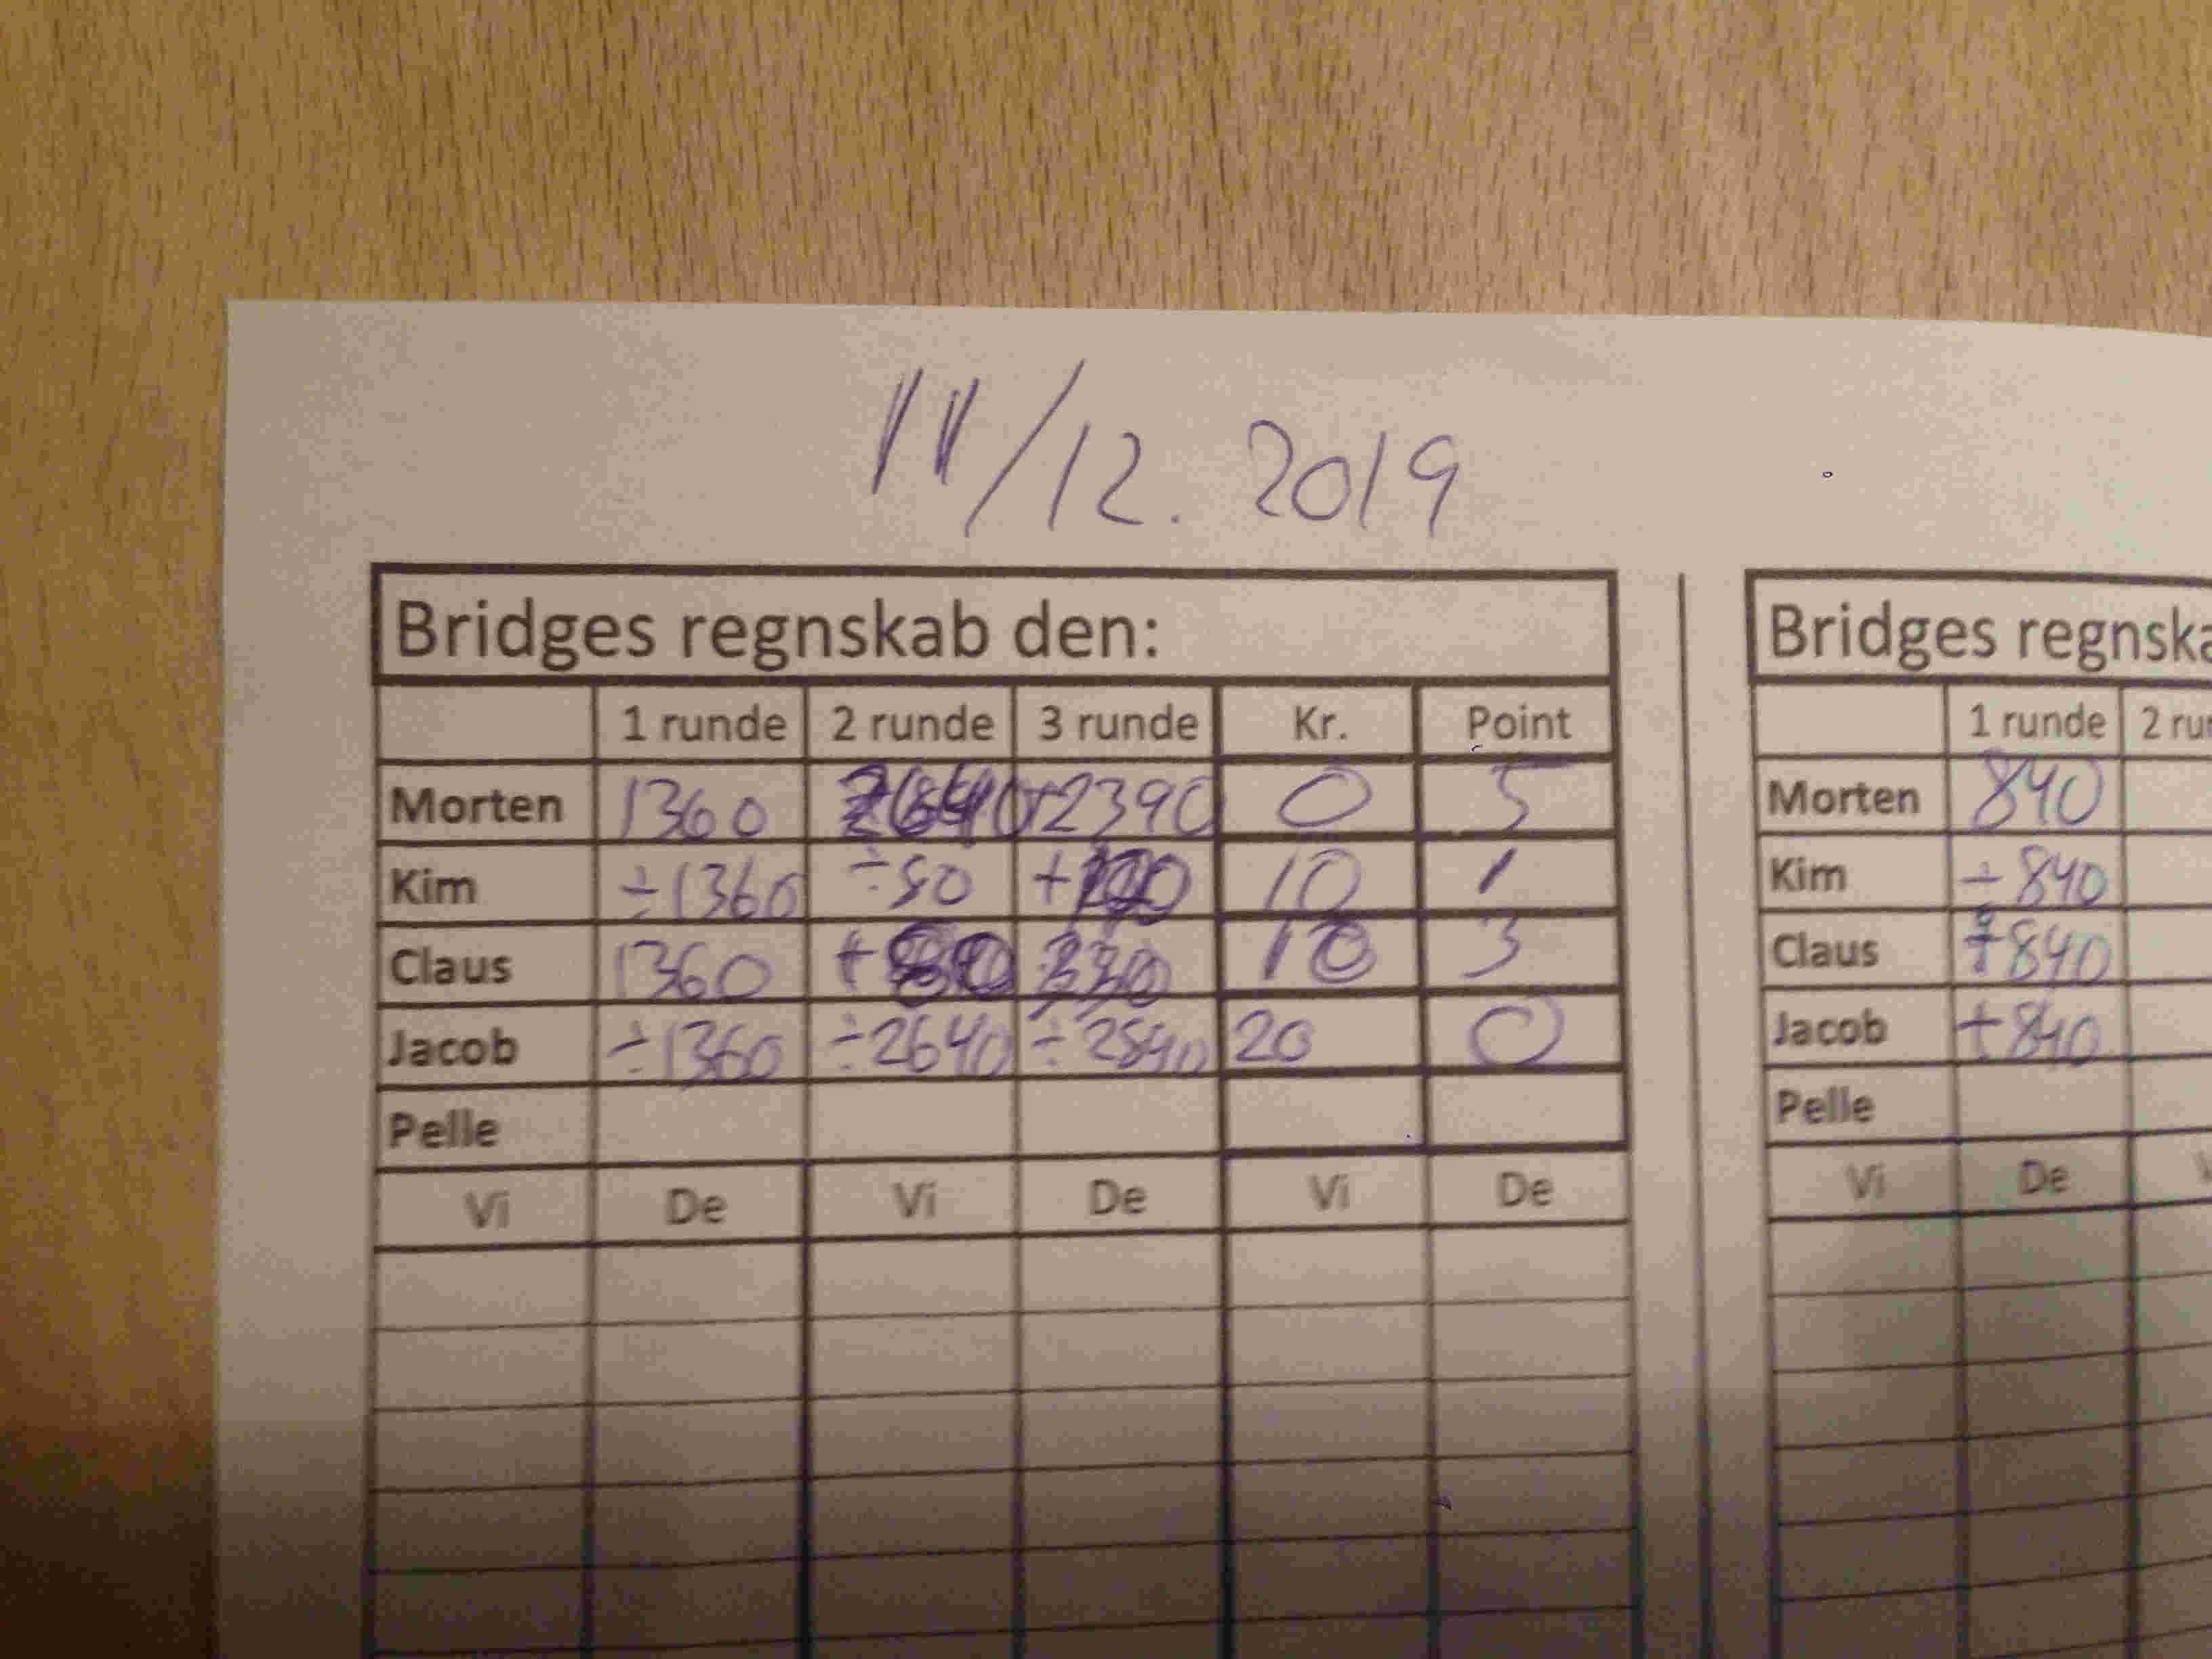 11/12. 2019
Bridges regnskab den:
1 runde 2 runde 3 runde Kr. Point
Morten 1360 2640 +2390 0 5
Kim ÷1360 ÷50 10 1
Claus 1360 3
Jacob ÷1360 ÷2640 ÷2840 20 0
Pelle
Vi De Vi De Vi De
Bridges regnska
1 runde 2 ru
Morten 840
Kim ÷840
Claus 840
Jacob +840
Pelle
Vi De